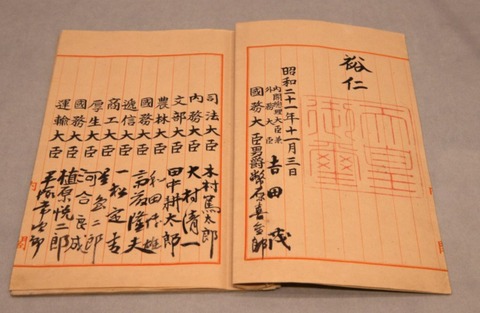 裕仁
天皇
御璽
昭和二十一年十一月三日
內閣總理大臣兼
外務大臣 吉田茂
國務大臣 男爵 幣原喜重郎
司法大臣 木村篤太郎
內務大臣 大村清一
文部大臣 田中耕太郎
農林大臣 和田博雄
國務大臣 斎藤隆夫
遞信大臣 一松定吉
商工大臣 星島二郎
厚生大臣 河合良成
國務大臣 植原悦二郎
運輸大臣 平塚常次郎